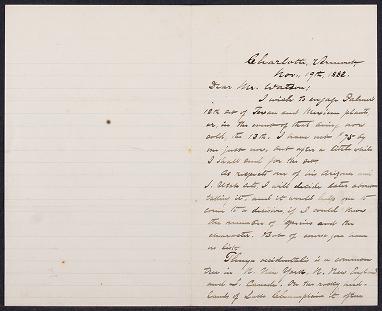 Charlotte, Vermont
Nov. 19th, 1882.
Dear Mr. Watson;
I wish to engage Palmer's
12th set of Texan and Mexican plants
or, in the event of that being now
sold, the 13th. I have not $75 by
me just now, but after a little while
I shall send for the set
As respects one of his Arizona and
S. Utah sets, I will decide later about
taking it, and it would help me to
come to a decision if I could know
the number of species and the
character. But of course you have
no list.
Thuya occidentalis is a common
tree in N. New York, N. New England
and S. Canada. On the rocky
of Lake Champlain it often